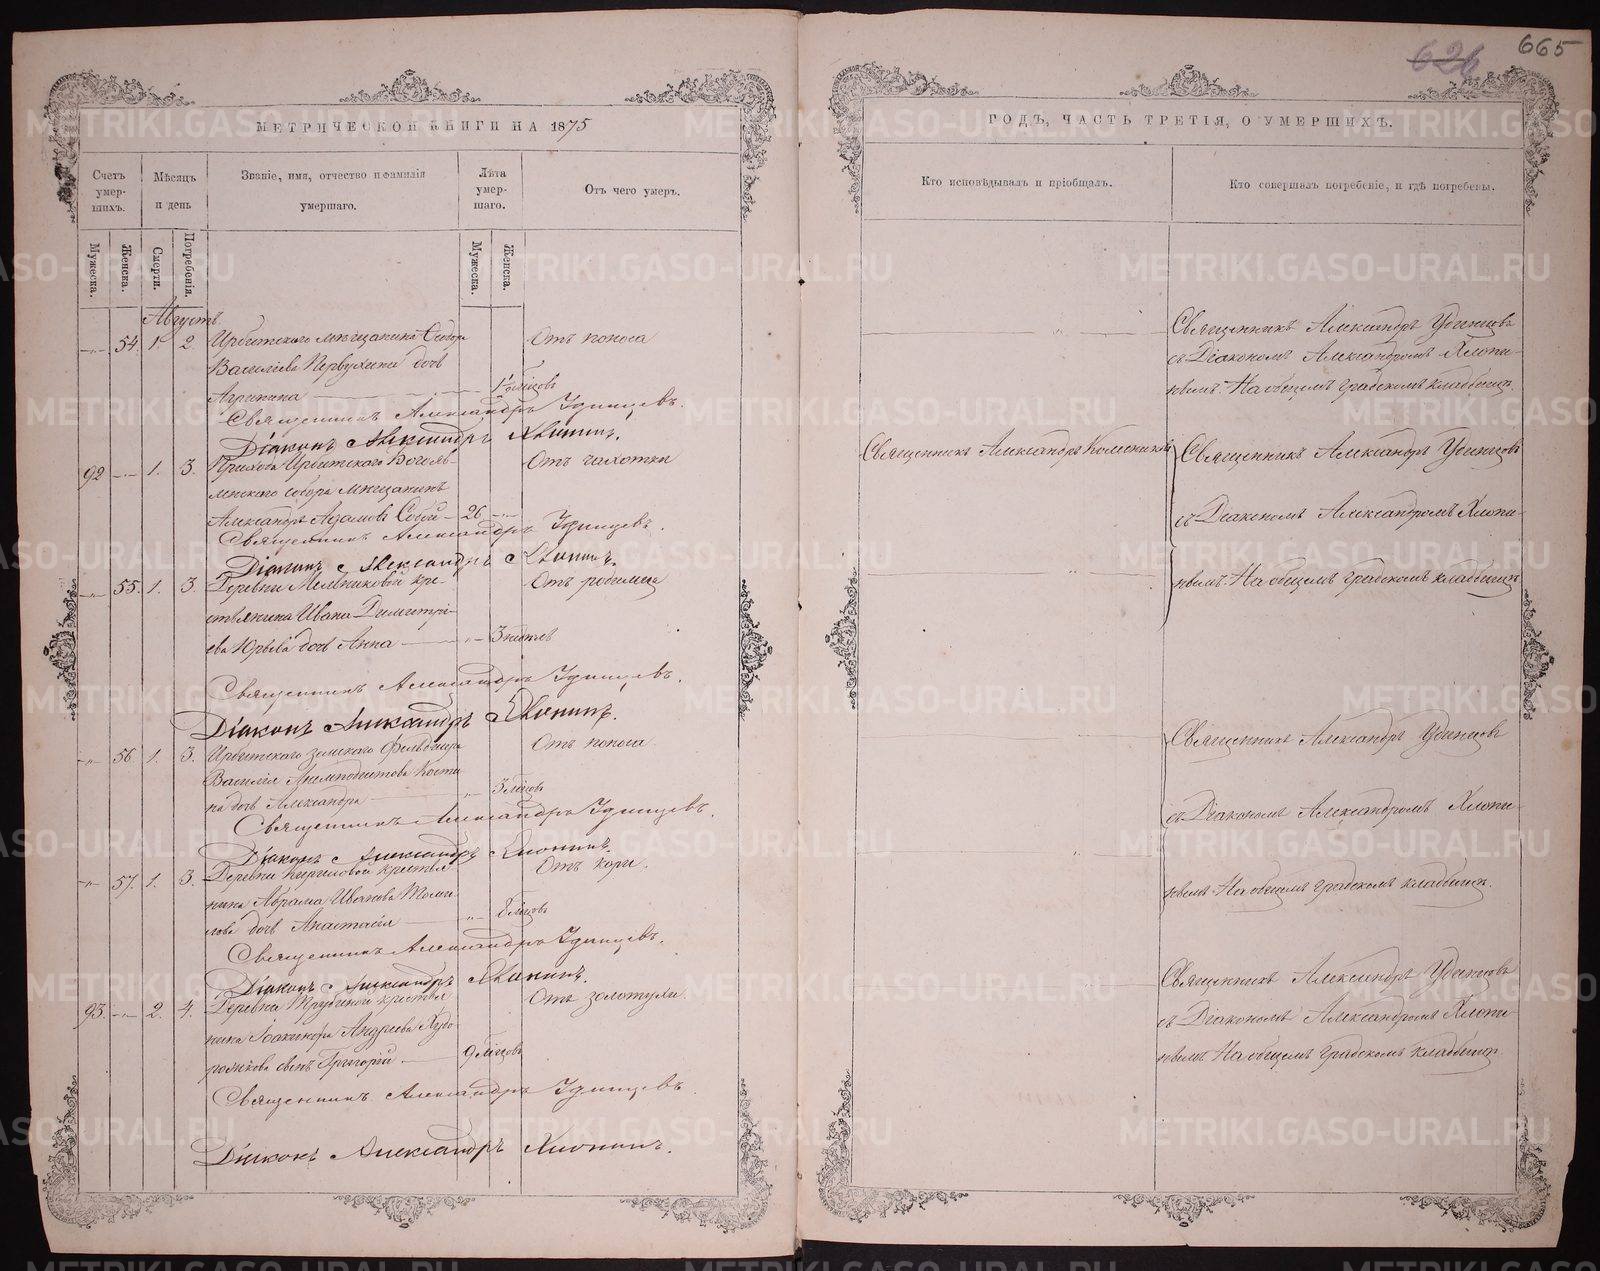 665
626
МЕТРИЧЕСКОЙ КНИГИ НА 1875
ГОДЪ, ЧАСТЬ ТРЕТІЯ, О УМЕРШИХЪ.
Счетъ умер-шихъ.
Мѣсяцъ и день
Званіе, имя, отчество и фамилія умершаго.
Лѣта умер-шаго.
Отъ чего умеръ.
Кто исповѣдывалъ и пріобщалъ.
Кто совершалъ погребеніе, и гдѣ погребены.
Мужеска.
Женска.
Смерти.
Погребенія.
Мужеска.
Женска.
Августъ
54. 1. 2 Ирбитского мѣщанина
Василіева Первухина дочь
Агрипина
Отъ поноса
Священникъ Александръ Удинцевъ.
Діаконъ Александръ Хлопинъ.
Священникъ Александръ Удинцевъ
съ Діакономъ Александромъ Хлопи-
нымъ. На общемъ градскомъ кладбищѣ.
92 1. 3. Прихода Ирбитского Богояв-
ленского собора мѣщанинъ
Александръ Адамовъ 26
Отъ чахотки
Священникъ Александръ Удинцевъ.
Діаконъ Александръ Хлопинъ.
Священникъ Александръ
Священникъ Александръ Удинцевъ
съ Діакономъ Александромъ Хлопи-
нымъ. На общемъ градскомъ кладбищѣ
55. 1. 3. Деревни Мельниковой кре-
стьянина Ивана Димитрі-
ева Юрьева дочь Анна 3 недѣль
Отъ родимца
Священникъ Александръ Удинцевъ.
Діаконъ Александръ Хлопинъ.
56 1. 3. Ирбитского земского фельдшера
Василія Анемподистова Кости-
на дочь Александра 3 мѣсцовъ
Отъ поноса
Священникъ Александръ Удинцевъ.
Діаконъ Александръ Хлопинъ.
Священникъ Александръ Удинцевъ
съ Діакономъ Александромъ Хлопи-
нымъ. На общемъ градскомъ кладбищѣ.
57. 1. 3. Деревни Кириловой крестья-
нина Аврама Иванова
дочь Анастасія 8 мѣсцовъ
Отъ кори.
Священникъ Александръ Удинцевъ.
Діаконъ Александръ Хлопинъ.
93. 2. 4. Деревни крестья-
нина Іоакинфа Андреева Худо-
рожкова сынъ Григорій 9 мѣсцовъ
Отъ золотухи
Священникъ Александръ Удинцевъ
Діаконъ Александръ Хлопинъ.
Священникъ Александръ Удинцевъ
съ Діакономъ Александромъ Хлопи-
нымъ. На общемъ градскомъ кладбищѣ.
METRIKI.GASO-URAL.RU